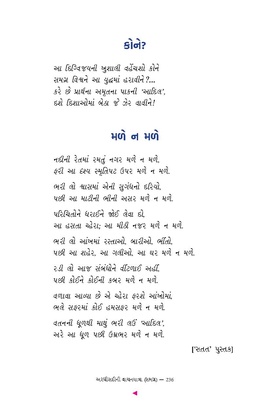 કોને?
આ દિગ્વિજયની ખુશાલી વહેંચશો કોને
સમગ્ર વિશ્વને આ યુદ્ધમાં હરાવીને ?...
કરે છે પ્રાર્થના અમૃતના પાકની 'આદિલ',
દશે દિશાઓમાં બેઠા જે ઝેર વાવીને!
મળે ન મળે
નદીની રેતમાં રમતું નગર મળે ન મળે,
ફરી આ દૃશ્ય સ્મૃતિપટ ઉપર મળે ન મળે.
ભરી લો શ્વાસમાં એની સુગંધનો દરિયો,
પછી આ માટીની ભીની અસર મળે ન મળે.
પરિચિતોને ધરાઈને જોઈ લેવા દો,
આ હસતા ચહેરા; આ મીઠી નજર મળે ન મળે.
ભરી લો આંખમાં રસ્તાઓ, બારીઓ, ભીંતો,
પછી આ શહેર, આ ગલીઓ, આ ઘર મળે ન મળે.
રડી લો આજ સંબંધોને વીંટળાઈ અહીં,
પછી કોઈને કોઈની કબર મળે ન મળે.
વળાવા આવ્યા છે એ ચહેરા ફરશે આંખોમાં,
ભલે સફરમાં કોઈ હમસફર મળે ન મળે.
વતનની ધૂળથી માથું ભરી લઉં 'આદિલ',
અરે આ ધૂળ પછી ઉમ્રભર મળે ન મળે.
['સતત' પુસ્તક]
(સમગ્ર) — 236